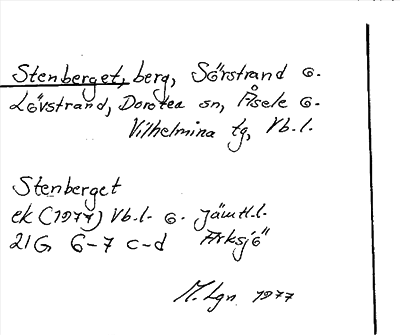 Stenberget, berg, Sörstrand o.
Lövstrand, Dorotea sn, Åsele o.
Vilhelmina tg, Vb.l.
Stenberget
ek (1977) Vb.l. o. Jämtl.l.
21G 6-7 c-d Arksjö
M.Lgn 1977